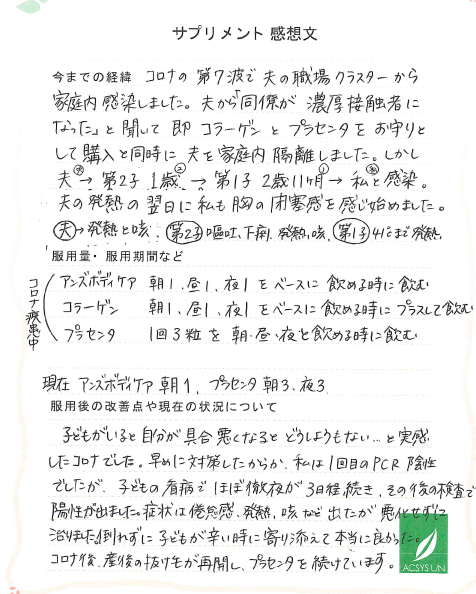 サプリメント 感想文
今までの経緯 コロナの第7波で夫の職場クラスターから
家庭内感染しました。夫から「同僚が 濃厚接触者に
なった」と聞いて 即 コラーゲンと プラセンタを お守りと
して購入と同時に 夫を家庭内隔離しました。しかし
夫→第2子 1歳→第1子 2歳11ヶ月→私と感染。
夫の発熱の翌日に私も胸の閉塞感を感じ始めました。
夫→発熱と咳、第2子 嘔吐、下痢、発熱、咳、第1子 41℃まで発熱
服用量・服用期間など
コロナ疾患中
アンズボディケア 朝1、昼1、夜1をベースに飲める時に飲む
コラーゲン 朝1、昼1、夜1をベースに飲める時にプラスして飲む
プラセンタ 1回3粒を朝・昼・夜と飲める時に飲む
現在 アンズボディケア 朝1、プラセンタ 朝3、夜3
服用後の改善点や現在の状況について
子どもがいると自分が具合悪くなると どうしようもない…と実感
したコロナでした。早めに対策したからか、私は1回目のPCR陰性
でしたが、子どもの看病で ほぼ徹夜が3日程続き、その後の検査で
陽性が出ました。症状は倦怠感、発熱、咳など出たが悪化せずに
治りました。倒れずに子どもが辛い時に寄り添えて本当に良かった。
コロナ後、産後の抜け毛が再開し、プラセンタを続けています。
ACSYSUN